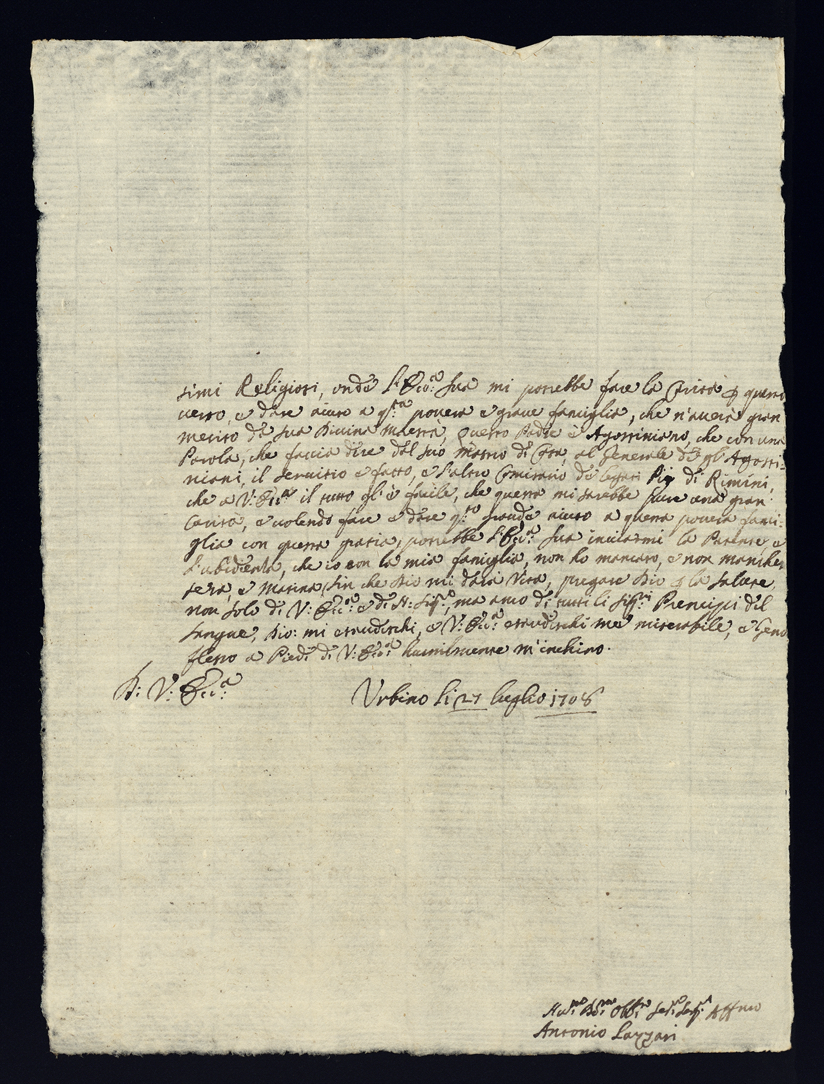 simi Religiosi, onde l'Ecc.a Sua mi potrebbe fare la Carità p questo
verso, e dare aiuto a q.sta povera e grave famiglia, che n'averà gran
merito da sua Divina Maestà, questo Padre è Agostiniano, che con una
Parola, che faccia dire dal suo Mastro di Casa, al Generale de gli Agosti-
niani, il servitio è fatto, e l'altro Comissario de Legati Pij di Rimini
che a V: Ecc.a il tutto gl'è facile, che questa mi sarebbe pure una gran
Carità, e volendo fare e dare q.sto grande aiuto a questa povera fami-
glia con questa gratia, potrebbe l'Ecc.a Sua inviarmi la Patente, e
l'ubidienza, che io con la mia famiglia, non ho mancato, e non mancherò
sera, e Matina sin che Dio mi darà Vita, pregare Dio p la salute
non solo di V: Ecc.a e di ma anco di tutti li Prencipi del
Sangue, Dio: mi essaudischi, e V: Ecc.a essaudischi me miserabile, e Geno
flesso a Piedi di V: Ecc.a humilmente m'inchino.
D: V: Ecc.a
Urbino li 27 luglio 1708
Hu.mo D.mo Obb.mo
Antonio Lazzari